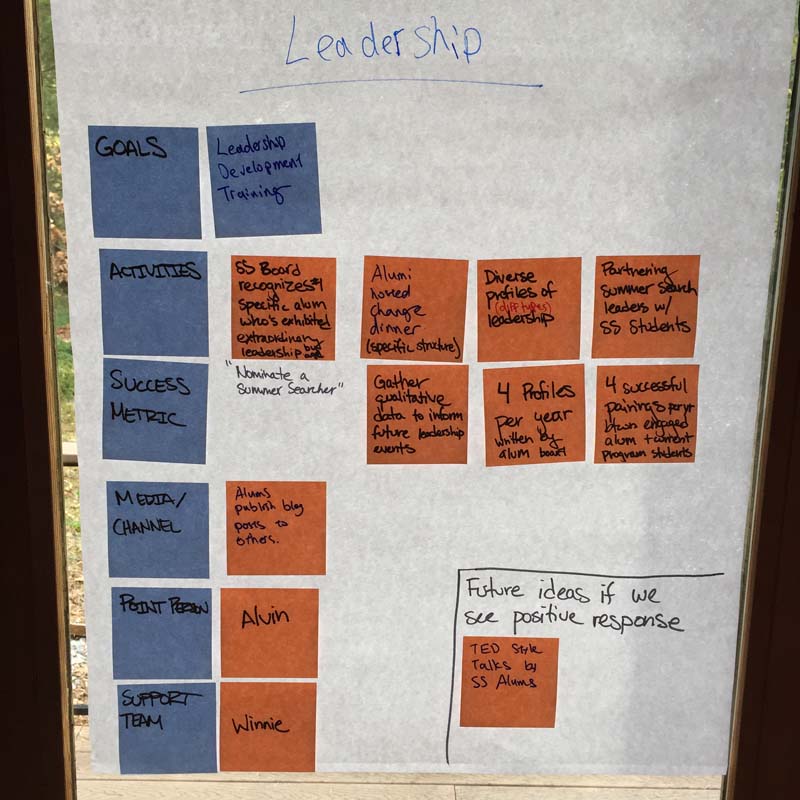 Leadership
GOALS
Leadership
Development
Training
ACTIVITIES
SS Board
recognizes
specific alum
who's exhibited
extraordinary
leadership
"Nominate a
Summer Searcher"
Alumi
hosted
change
dinner
(specific structure)
Diverse
profiles of
(diff types)
leadership
Partnering
Summer Search
leaders w/
SS Students
SUCCESS
METRIC
Gather
qualitative
data to inform
future leadership
events
4 Profiles
per year
written by
alum board
4 successful
pairings per yr
btwn engaged
alum + current
program students
MEDIA/
CHANNEL
Alums
publish blog
posts to
others.
POINT PERSON
Alvin
SUPPORT
TEAM
Winnie
Future ideas if we
see positive response
TED Style
Talks by
SS Alums